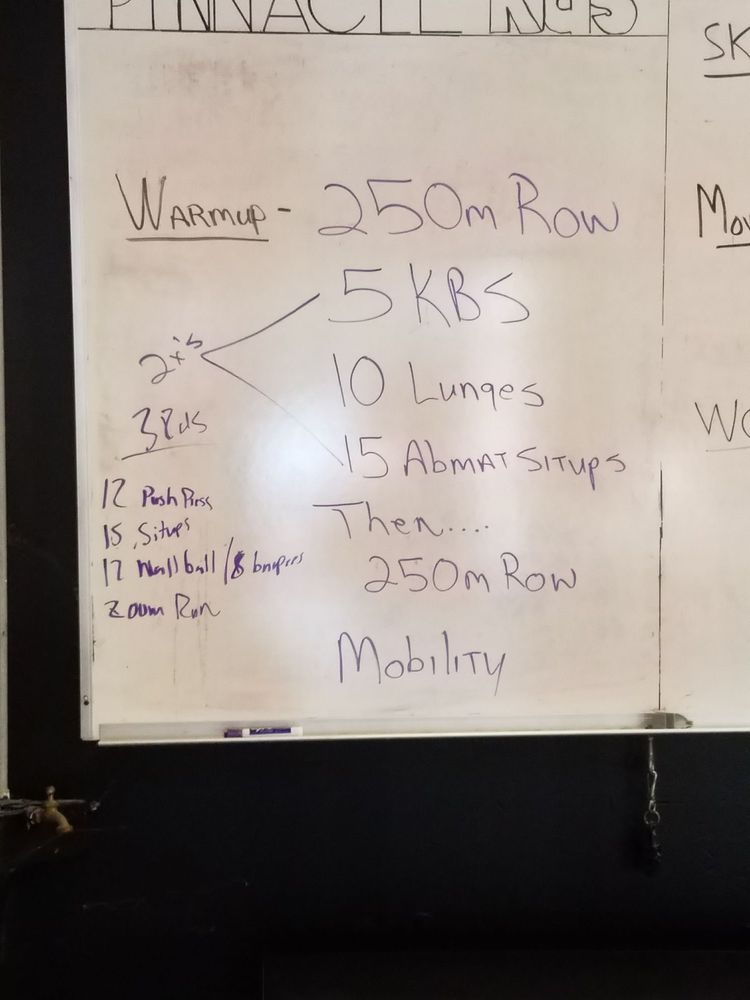 PINNACLE
SK
WARMUP - 250m ROW
MOV
5 KBS
2x's
10 Lunges
3Rds
WO
15 ABMAT SITUPS
12 Push Press
Then....
15 Situps
12 Wall ball / 8 burpees
250m ROW
200m Run
MOBILITY